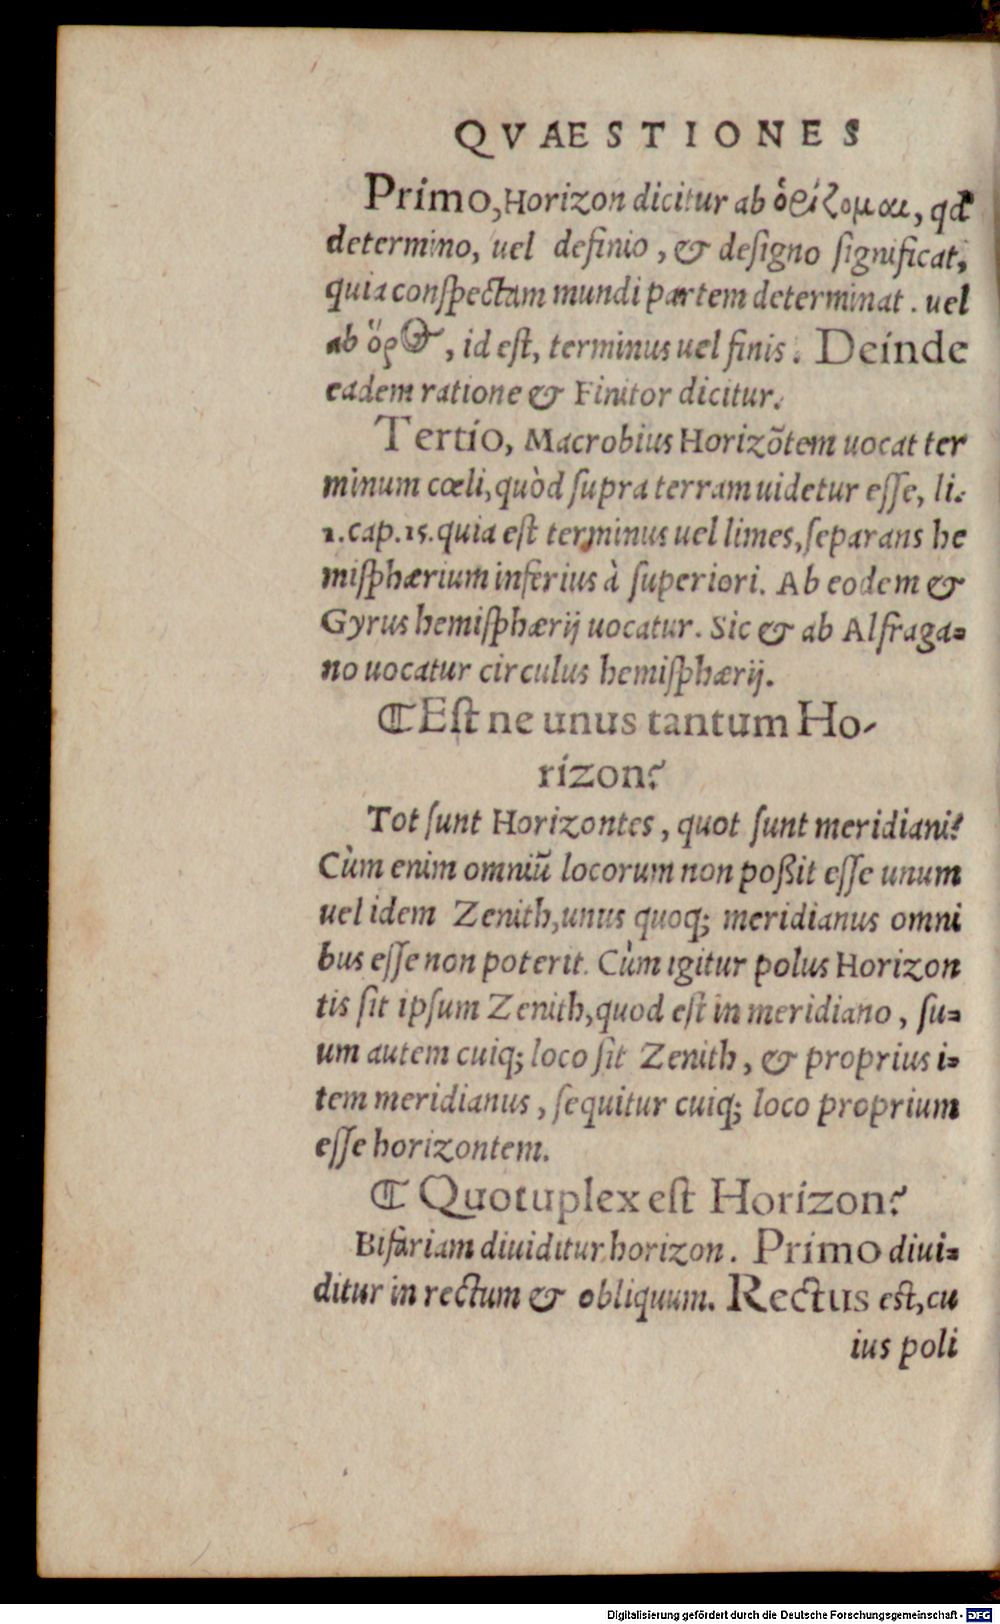 QVAESTIONES
Primo, Horizon dicitur ab ὁρίζομαι, qđ
determino, uel definio, & deſigno ſignificat,
quia conſpectam mundi partem determinat. uel
ab ὅρος, id eſt, terminus uel finis. Deinde
eadem ratione & Finitor dicitur.
Tertio, Macrobius Horizõtem uocat ter
minum cœli, quòd ſupra terram uidetur eſſe, li.
1. cap. 15. quia eſt terminus uel limes, ſeparans he
miſphærium inferius à ſuperiori. Ab eodem &
Gyrus hemiſphærij uocatur. Sic & ab Alfraga=
no uocatur circulus hemiſphærij.
⁋Eſt ne unus tantum Ho-
rizon?
Tot ſunt Horizontes, quot ſunt meridiani?
Cùm enim omniũ locorum non poßit eſſe unum
uel idem Zenith, unus quoq; meridianus omni
bus eſſe non poterit. Cùm igitur polus Horizon
tis ſit ipſum Zenith, quod eſt in meridiano, ſu=
um autem cuiq; loco ſit Zenith, & proprius i=
tem meridianus, ſequitur cuiq; loco proprium
eſſe horizontem.
⁋ Quotuplex eſt Horizon?
Bifariam diuiditur horizon. Primo diui=
ditur in rectum & obliquum. Rectus eſt, cu
ius poli
Digitalisierung gefördert durch die Deutsche Forschungsgemeinschaft - DFG